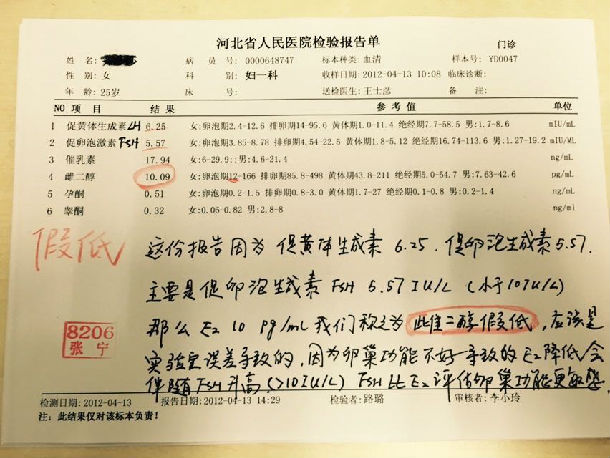 河北省人民医院检验报告单 门诊
姓 名: 病 员 号: 0000648747 标本种类: 血清 样本号: YD0047
性 别: 女 科 别: 妇一科 收样日期: 2012-04-13 10:08 临床诊断:
年 龄: 25岁 床 号: 送检医生: 王士忢 备 注:
NO 项 目 结 果 参 考 值 单位
1 促黄体生成素 LH 6.25 女:卵泡期2.4-12.6 排卵期14-95.6 黄体期1.0-11.4 绝经期7.7-58.5 男:1.7-8.6 mIU/mL
2 促卵泡激素 FSH 5.57 女:卵泡期3.85-8.78 排卵期4.54-22.5 黄体期1.8-5.12 绝经期16.74-113.6 男:1.27-19.2 mIU/mL
3 催乳素 17.94 女:6-29.9; 男:4.6-21.4 ng/mL
4 雌二醇 10.09 女:卵泡期12-166 排卵期85.8-498 黄体期43.8-211 绝经期5.0-54.7 男:7.63-42.6 pg/mL
5 孕酮 0.51 女:卵泡期0.2-1.5 排卵期0.8-3.0 黄体期1.7-27 绝经期0.1-0.8 男:0.2-1.4 ng/mL
6 睾酮 0.32 女:0.06-0.82 男:2.8-8
假低
这份报告因为促黄体生成素6.25, 促卵泡生成素5.57.
主要是促卵泡生成素 FSH 5.57 IU/L (小于10IU/L)
那么E2 10 pg/mL 我们称之为 此雌二醇假低, 应该是
实验室误差导致的, 因为卵巢功能不好导致的E2降低会
伴随FSH升高(>10IU/L) FSH比E2评估卵巢功能更敏感.
8206
张宁
检测日期: 2012-04-13 报告日期: 2012-04-13 14:29 检验者: 路璐 审核者: 李小玲
注: 此结果仅对该标本负责!